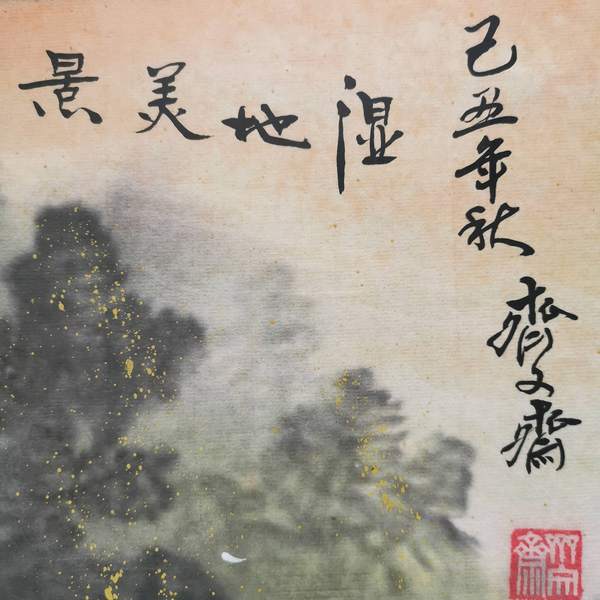 湿地美景
己丑年秋
齊文齋